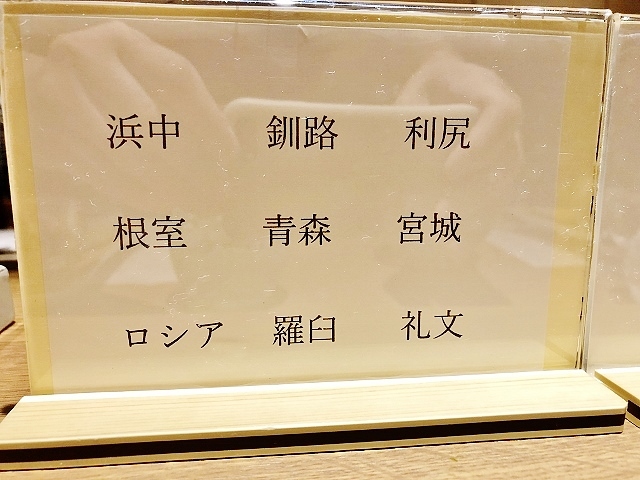 浜中 釧路 利尻
根室 青森 宮城
ロシア 羅臼 礼文